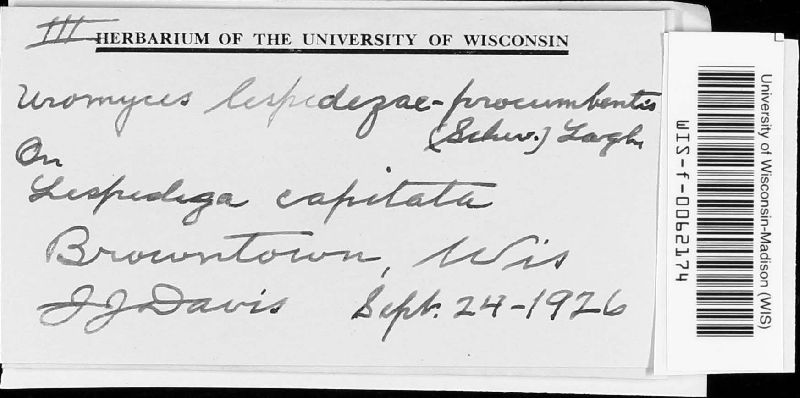 III
HERBARIUM OF THE UNIVERSITY OF WISCONSIN
Uromyces lespedezae-procumbentis
(Schw.) Lagh.
On
Lespedeza capitata
Browntown, Wis
J J Davis Sept. 24-1926
University of Wisconsin-Madison (WIS)
WIS-f-0062174